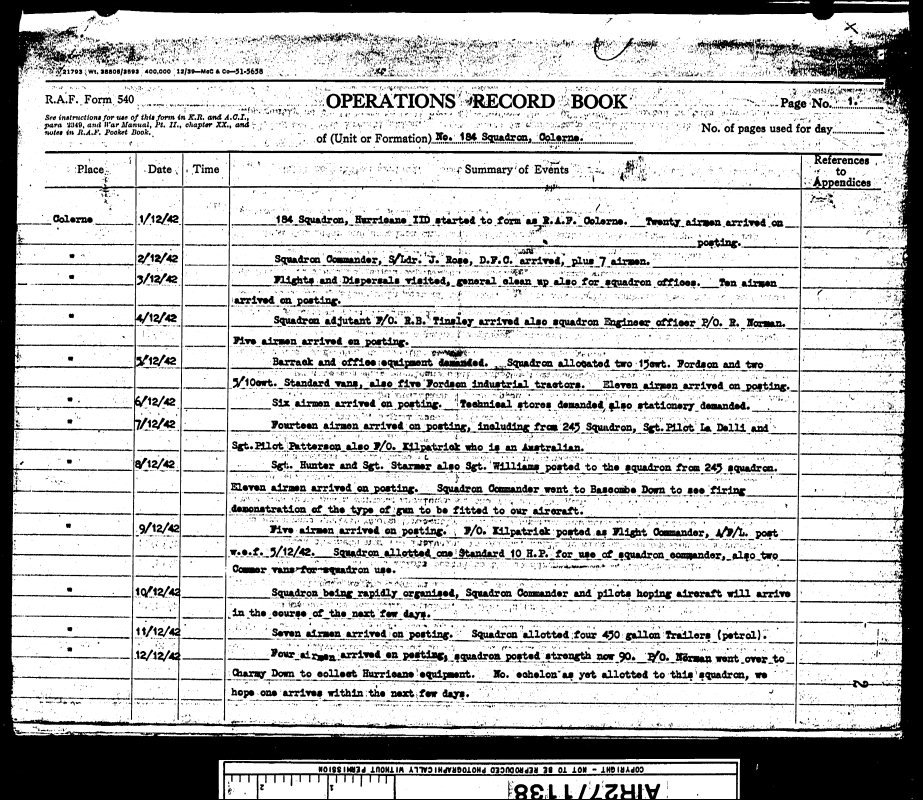 21793 Wt. 38808/2693 400,000 12/39—McC & Co—51-5658
R.A.F. Form 540
OPERATIONS RECORD BOOK
Page No. 1.
See instructions for use of this form in K.R. and A.C.I.,
para 2349, and War Manual, Pt. II., chapter XX., and
notes in R.A.F. Pocket Book.
of (Unit or Formation) No. 184 Squadron, Colerne.
No. of pages used for day
Place Date Time Summary of Events References to Appendices
Colerne 1/12/42 184 Squadron, Hurricane IID started to form as R.A.F. Colerne. Twenty airmen arrived on
posting.
" 2/12/42 Squadron Commander, S/Ldr. J. Rose, D.F.C. arrived, plus 7 airmen.
" 3/12/42 Flights and Dispersals visited, general clean up also for squadron offices. Ten airmen
arrived on posting.
" 4/12/42 Squadron adjutant F/O. R.B. Tinsley arrived also squadron Engineer officer P/O. R. Norman.
Five airmen arrived on posting.
" 5/12/42 Barrack and office equipment demanded. Squadron allocated two 15cwt. Fordson and two
5/10cwt. Standard vans, also five Fordson industrial tractors. Eleven airmen arrived on posting.
" 6/12/42 Six airmen arrived on posting. Technical stores demanded also stationery demanded.
" 7/12/42 Fourteen airmen arrived on posting, including from 245 Squadron, Sgt.Pilot La Delli and
Sgt.Pilot Patterson also F/O. Kilpatrick who is an Australian.
" 8/12/42 Sgt. Hunter and Sgt. Starmer also Sgt. Williams posted to the squadron from 245 squadron.
Eleven airmen arrived on posting. Squadron Commander went to Bascombe Down to see firing
demonstration of the type of gun to be fitted to our aircraft.
" 9/12/42 Five airmen arrived on posting. F/O. Kilpatrick posted as Flight Commander, A/F/L. post
w.e.f. 5/12/42. Squadron allotted one Standard 10 H.P. for use of squadron commander, also two
Commer vans for squadron use.
" 10/12/42 Squadron being rapidly organised, Squadron Commander and pilots hoping aircraft will arrive
in the course of the next few days.
" 11/12/42 Seven airmen arrived on posting. Squadron allotted four 450 gallon Trailers (petrol).
" 12/12/42 Four airmen arrived on posting, squadron posted strength now 90. P/O. Norman went over to
Charmy Down to collect Hurricane equipment. No. echelon as yet allotted to this squadron, we
hope one arrives within the next few days.
2
COPYRIGHT - NOT TO BE REPRODUCED PHOTOGRAPHICALLY WITHOUT PERMISSION
1 2
AIR27/1138